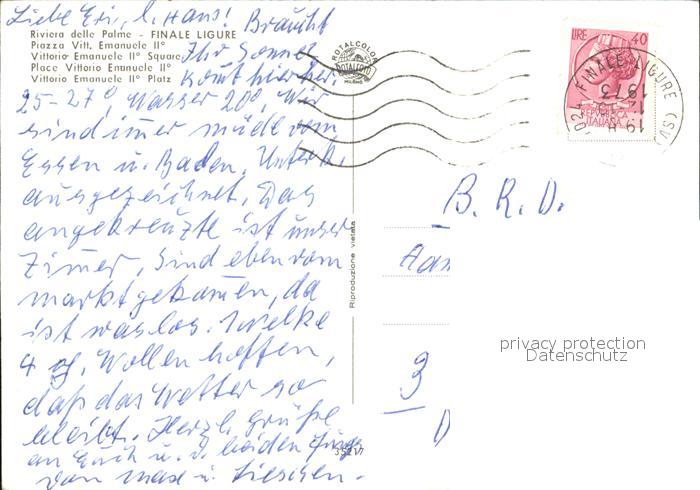 Liebe Evi, l. Hans! Braucht
Riviera delle Palme - FINALE LIGURE
Piazza Vitt. Emanuele II°
Vittorio Emanuele II° Square
Place Vittorio Emanuele II°
Vittorio Emanuele II° Platz
Ihr Sonne
komt hierher,
25-27°, Wasser 20°, Wir
sind imer müde vom
Essen u. Baden, Unterk.
ausgezeichnet. Das
angekreuzte ist unser
Zimer, sind eben vom
markt gekomen, da
ist was los. Welke
4 Wollen hoffen,
daß das Wetter so
bleibt. Herzl. Grüße
an Euch u. d. beiden Jungs
von max u. Lieschen.
ROTALCOLOR
ROTALFOTO
MILANO
Riproduzione vietata
35217
LIRE 40
REPUBBLICA
ITALIANA
024 FINALE LIGURE (SV)
1973
B. R. D.
3
privacy protection
Datenschutz